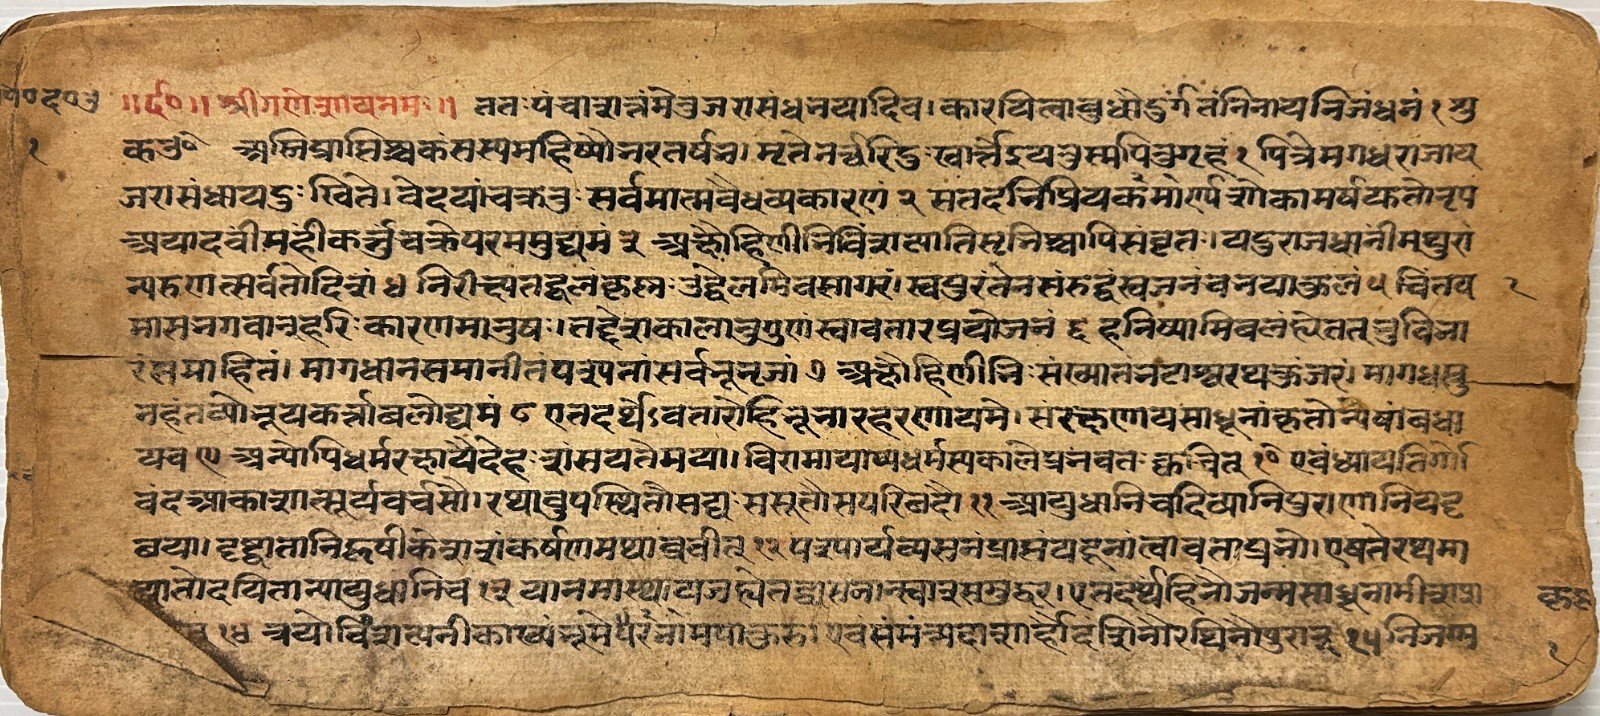 ॥र्द०॥ श्रीगणेशायनमः॥ ततः पंचाशत्तमेतुजरासंधनयादिव। कारयित्वाबुधौदुर्गंतंनिनायनिजंधनं १ शु
कउ० अस्तिप्राप्तिश्चकंसस्यमहिष्यौभरतर्षभ। मृतेभर्त्तरिदुःखार्त्तेईयतुस्मपितुर्गृहं १ पित्रेमगधराजाय
जरासंधायदुःखिते। वेदयांचक्रतुः सर्वमात्मवैधव्यकारणं २ सतदप्रियमाकर्ण्यशोकामर्षयुतोनृप
अयादवींमहींकर्त्तुंचक्रेपरममुद्यमं ३ अक्षौहिणीभिर्विंशत्यातिसृभिश्चापिसंवृतः। यदुराजधानींमथुरां
न्यरुणत्सर्वतोदिशं ४ निरीक्ष्यतद्बलंकृष्ण उद्वेलमिवसागरं। स्वपुरंतेनसंरुद्धंस्वजनंचभयाकुलं ५ चिंतया
मासभगवान्हरिः कारणमानुषः। तद्देशकालानुगुणंस्वावतारप्रयोजनं ६ हनिष्यामिबलंह्येतत्भुविभा
रंसमाहितं। मागधेनसमानीतंवश्यानांसर्वभूभुजां ७ अक्षौहिणीभिः संख्यातंभटाश्वरथकुंजरं। मागधस्तु
नहंतव्योभूयकर्त्ताबलोद्यमं ८ एतदर्थेऽवतारोहिभूभारहरणायमे। संरक्षणायसाधूनांकृतोन्येषांवधा
यच ९ अन्योपिधर्मरक्षायैदेहः संभ्रियतेमया। विरामायाप्यधर्मस्यकालेप्रभवतः क्वचित् १० एवंध्यायतिगो
विंदआकाशात्सूर्यवर्चसौ। रथावुपस्थितौसद्यः ससूतौसपरिछदौ ११ आयुधानिचदिव्यानिपुराणानियदृ
छया। दृष्ट्वातानिहृषीकेशःसंकर्षणमथाब्रवीत् १२ पश्यार्यव्यसनंप्राप्तंयदूनांत्वावतांप्रभो। एषतेरथआ
यातोदयितान्यायुधानिच १३ यानमास्थायजह्येतद्व्यसनात्स्वान्समुद्धर। एतदर्थंहिनोजन्मसाधूनामीशश
१४ त्रयोविंशत्यनीकाख्यंभूमेर्भारमपाकुरु। एवंसंमंत्र्यदाशार्हौदंशितौरथिनौपुरात् १५ निजग्म